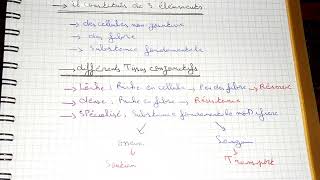 → il constitués de 3 éléments
→ des cellules non jointives
→ des fibre
→ Substance fondamentale
→ différents Tissus conjonctifs
→ Lâche : Riche en cellule peu de fibre →
→ dense : Riche en fibre → Résistance
→ Spécialisé : Substance fondamentale modifiée
Sang
Soutien Transport